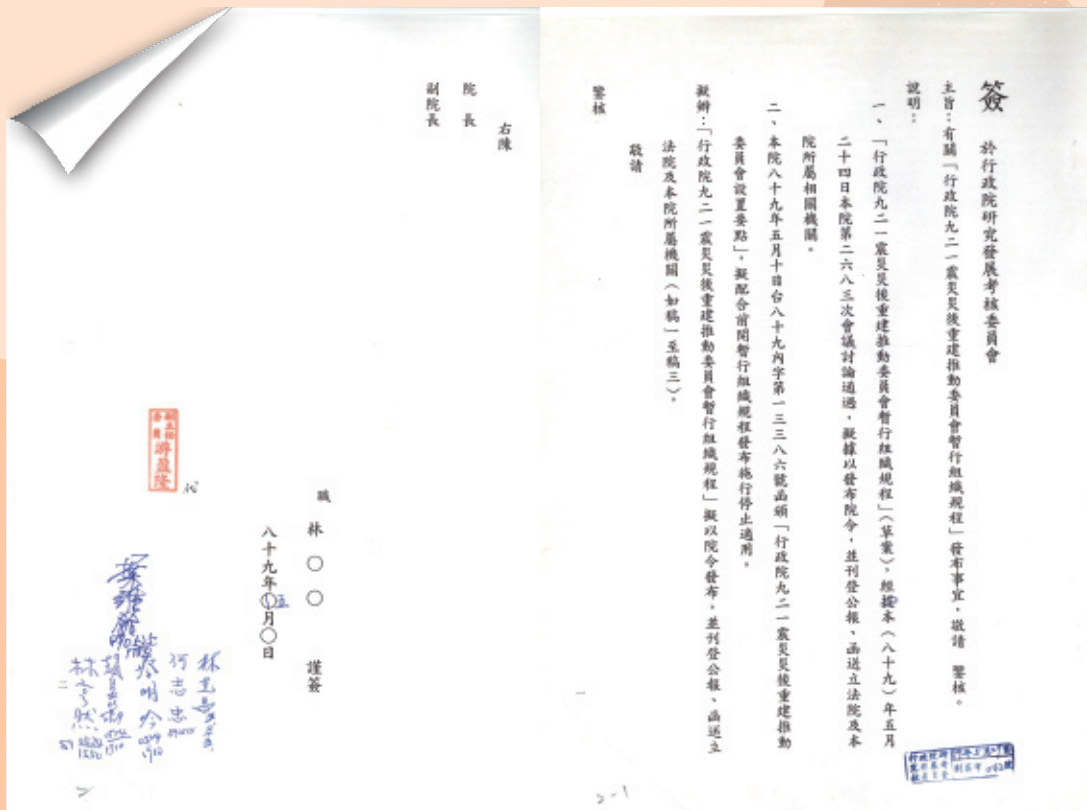 簽 於行政院研究發展考核委員會
主旨：有關「行政院九二一震災災後重建推動委員會暫行組織規程」發布事宜，敬請 鑒核。
說明：
一、「行政院九二一震災災後重建推動委員會暫行組織規程」（草案），經提本（八十九）年五月
二十四日本院第二六八三次會議討論通過，擬據以發布院令，並刊登公報、函送立法院及本
院所屬相關機關。
二、本院八十九年五月十日台八十九內字第一三三八六號函頒「行政院九二一震災災後重建推動
委員會設置要點」，擬配合前開暫行組織規程發布施行停止適用。
擬辦：「行政院九二一震災災後重建推動委員會暫行組織規程」擬以院令發布，並刊登公報、函送立
法院及本院所屬機關（如稿一至稿三）。
敬請
鑒核
一
2-1
右陳
院 長
副院長
職 林 ○ ○ 謹簽
八十九年○五月○日
副主任
委員
游盈隆
何志忠
二
2